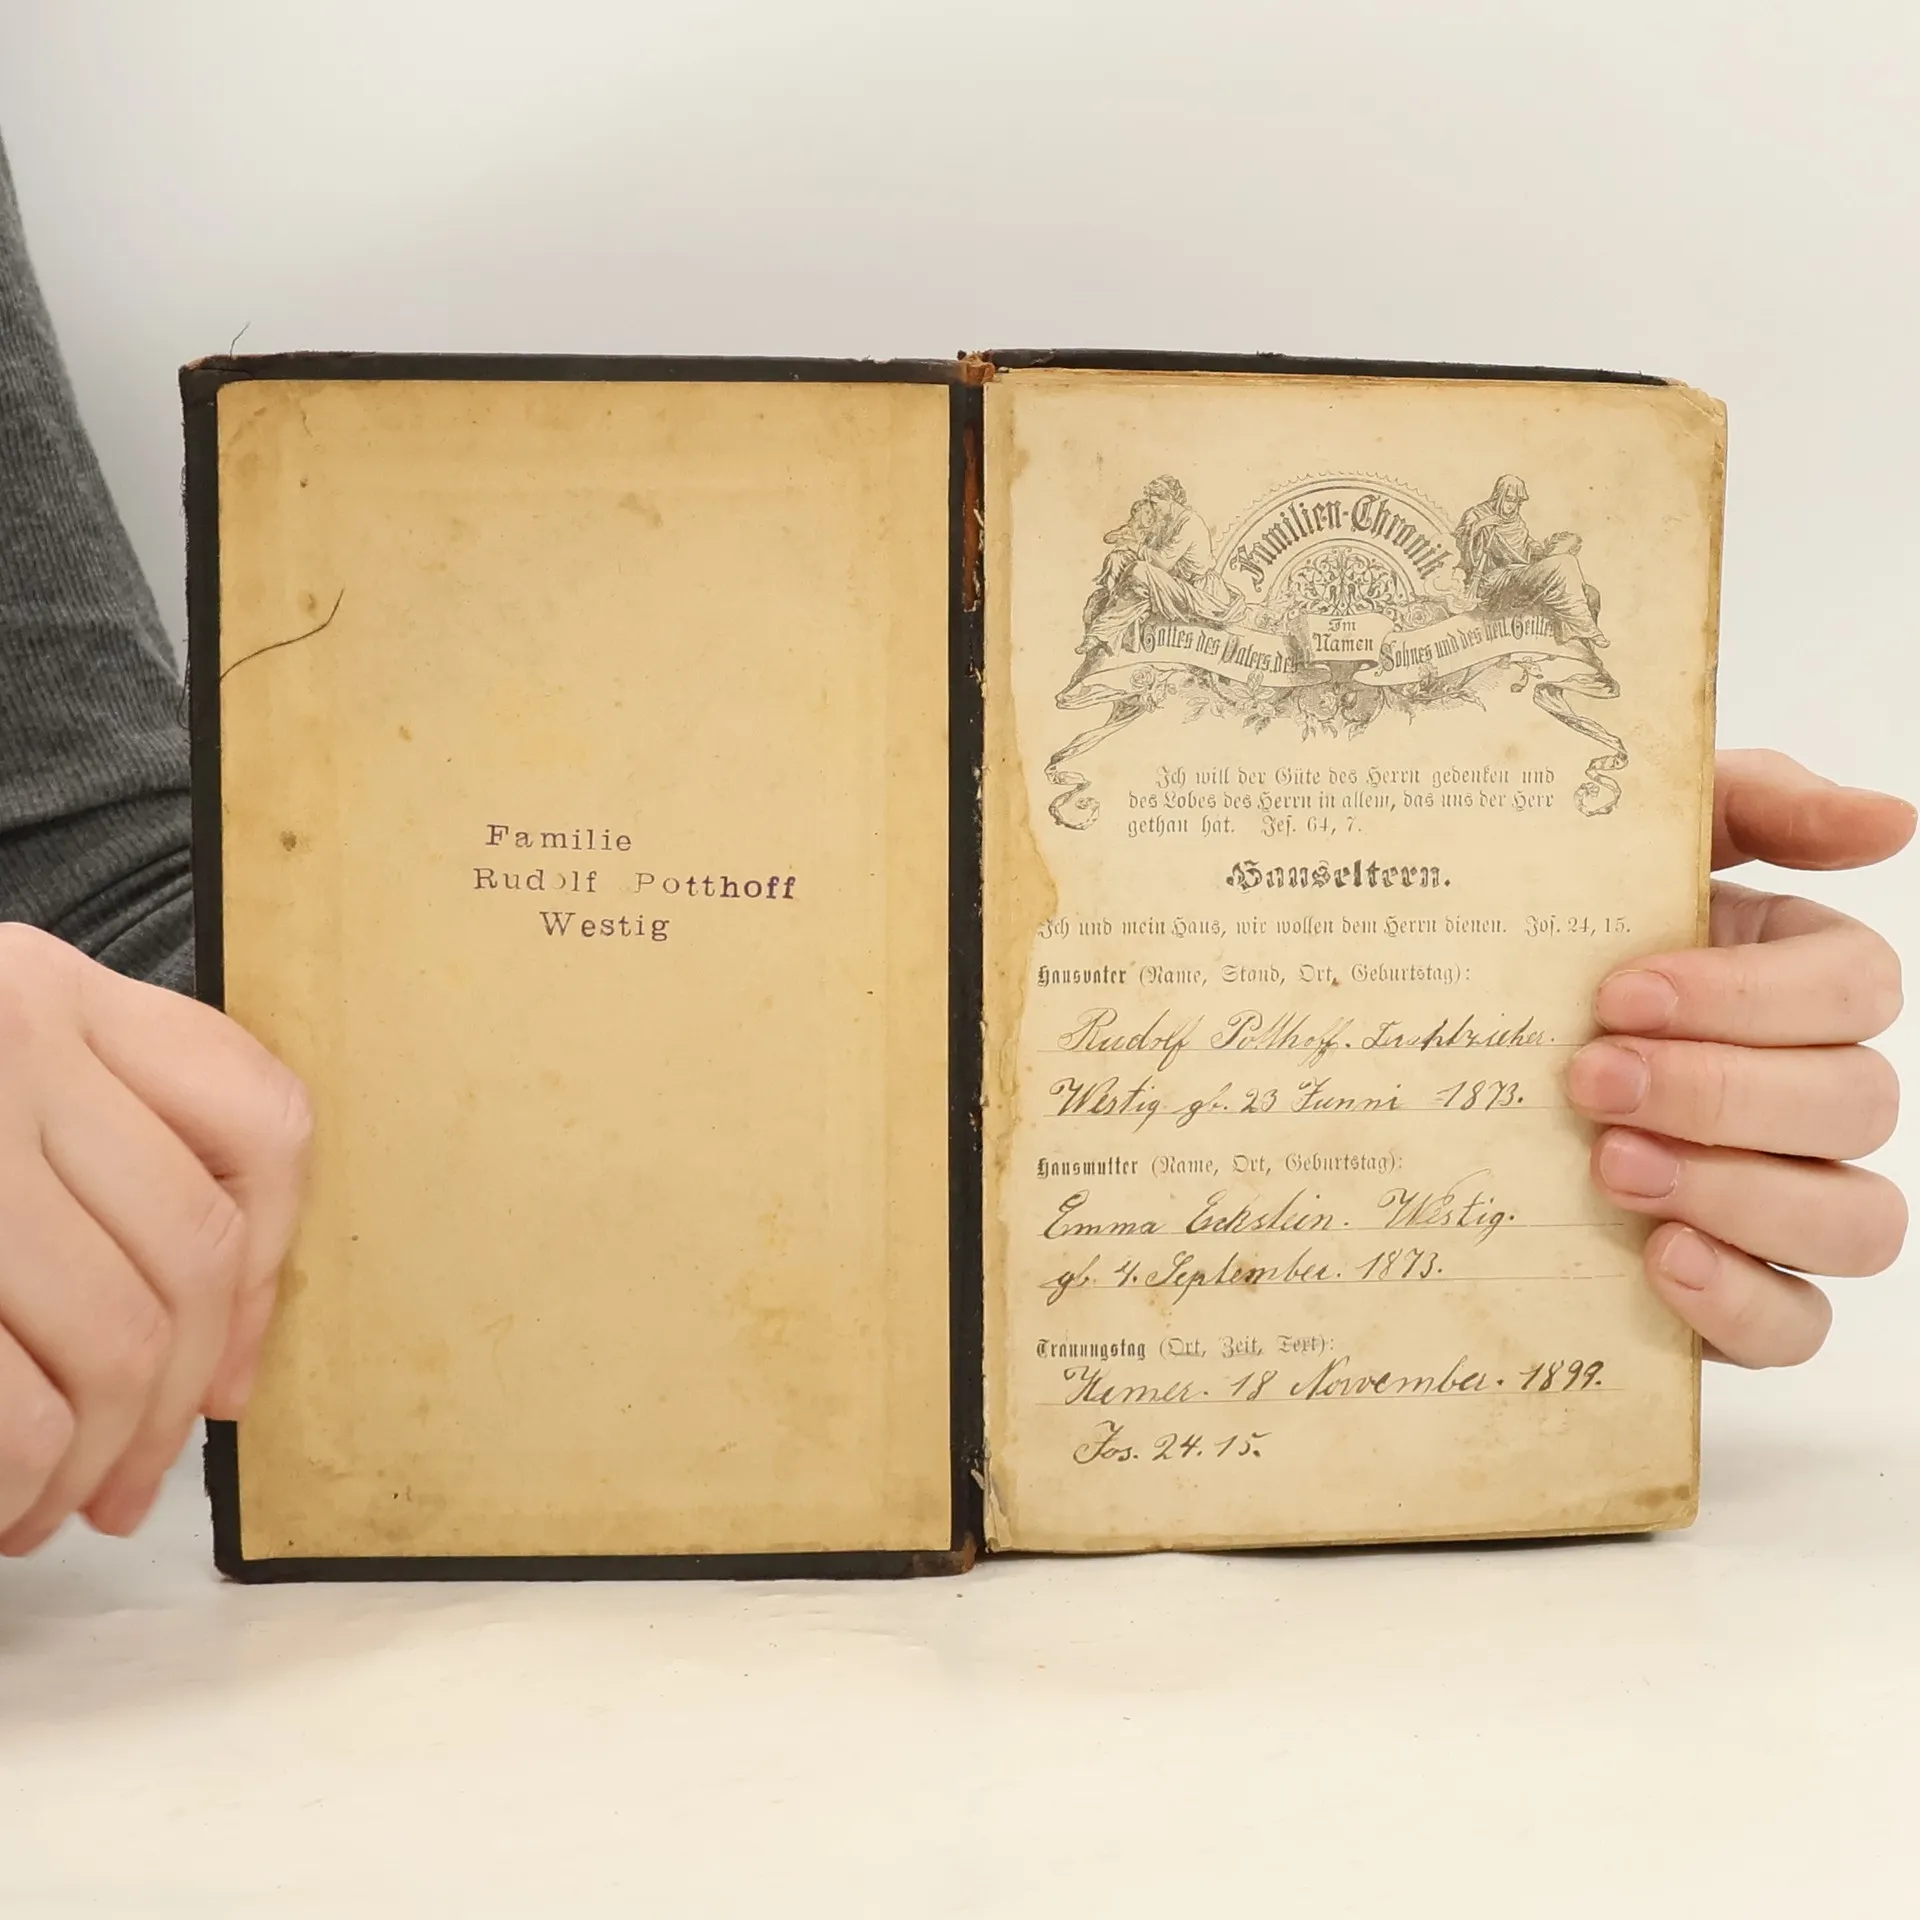 Familie
Rudolf Potthoff
Westig
Familien-Chronik
Im
Namen
Gottes des Vaters, des Sohnes und des heil. Geistes
Ich will der Güte des Herrn gedenken und
des Lobes des Herrn in allem, das uns der Herr
gethan hat. Jes. 64, 7.
Hauseltern.
Ich und mein Haus, wir wollen dem Herrn dienen. Jos. 24, 15.
Hausvater (Name, Stand, Ort, Geburtstag):
Rudolf Potthoff.
Westig gb. 23 Junni 1873.
Hausmutter (Name, Ort, Geburtstag):
Emma Eckstein. Westig.
gb. 4. September. 1873.
Trauungstag (Ort, Zeit, Text):
Hemer. 18 November. 1899.
Jos. 24. 15.